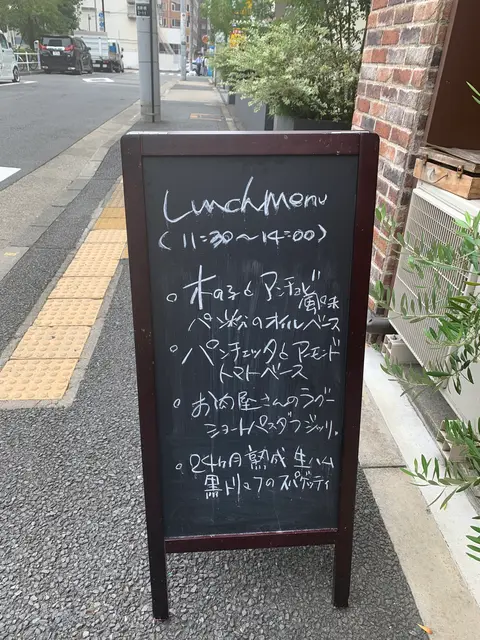 Lunch Menu
(11:30～14:00)
。木の子とアンチョビ風味
パン粉のオイルベース
。パンチェッタとアーモンド
トマトベース
。お肉屋さんのラグー
ショートパスタフジッリ。
。24ヶ月熟成生ハム
黒トリュフのスパゲッティ